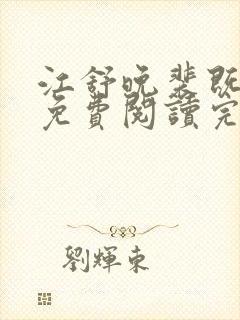 江舒晚裴既
免費閱讀完
劉輝東